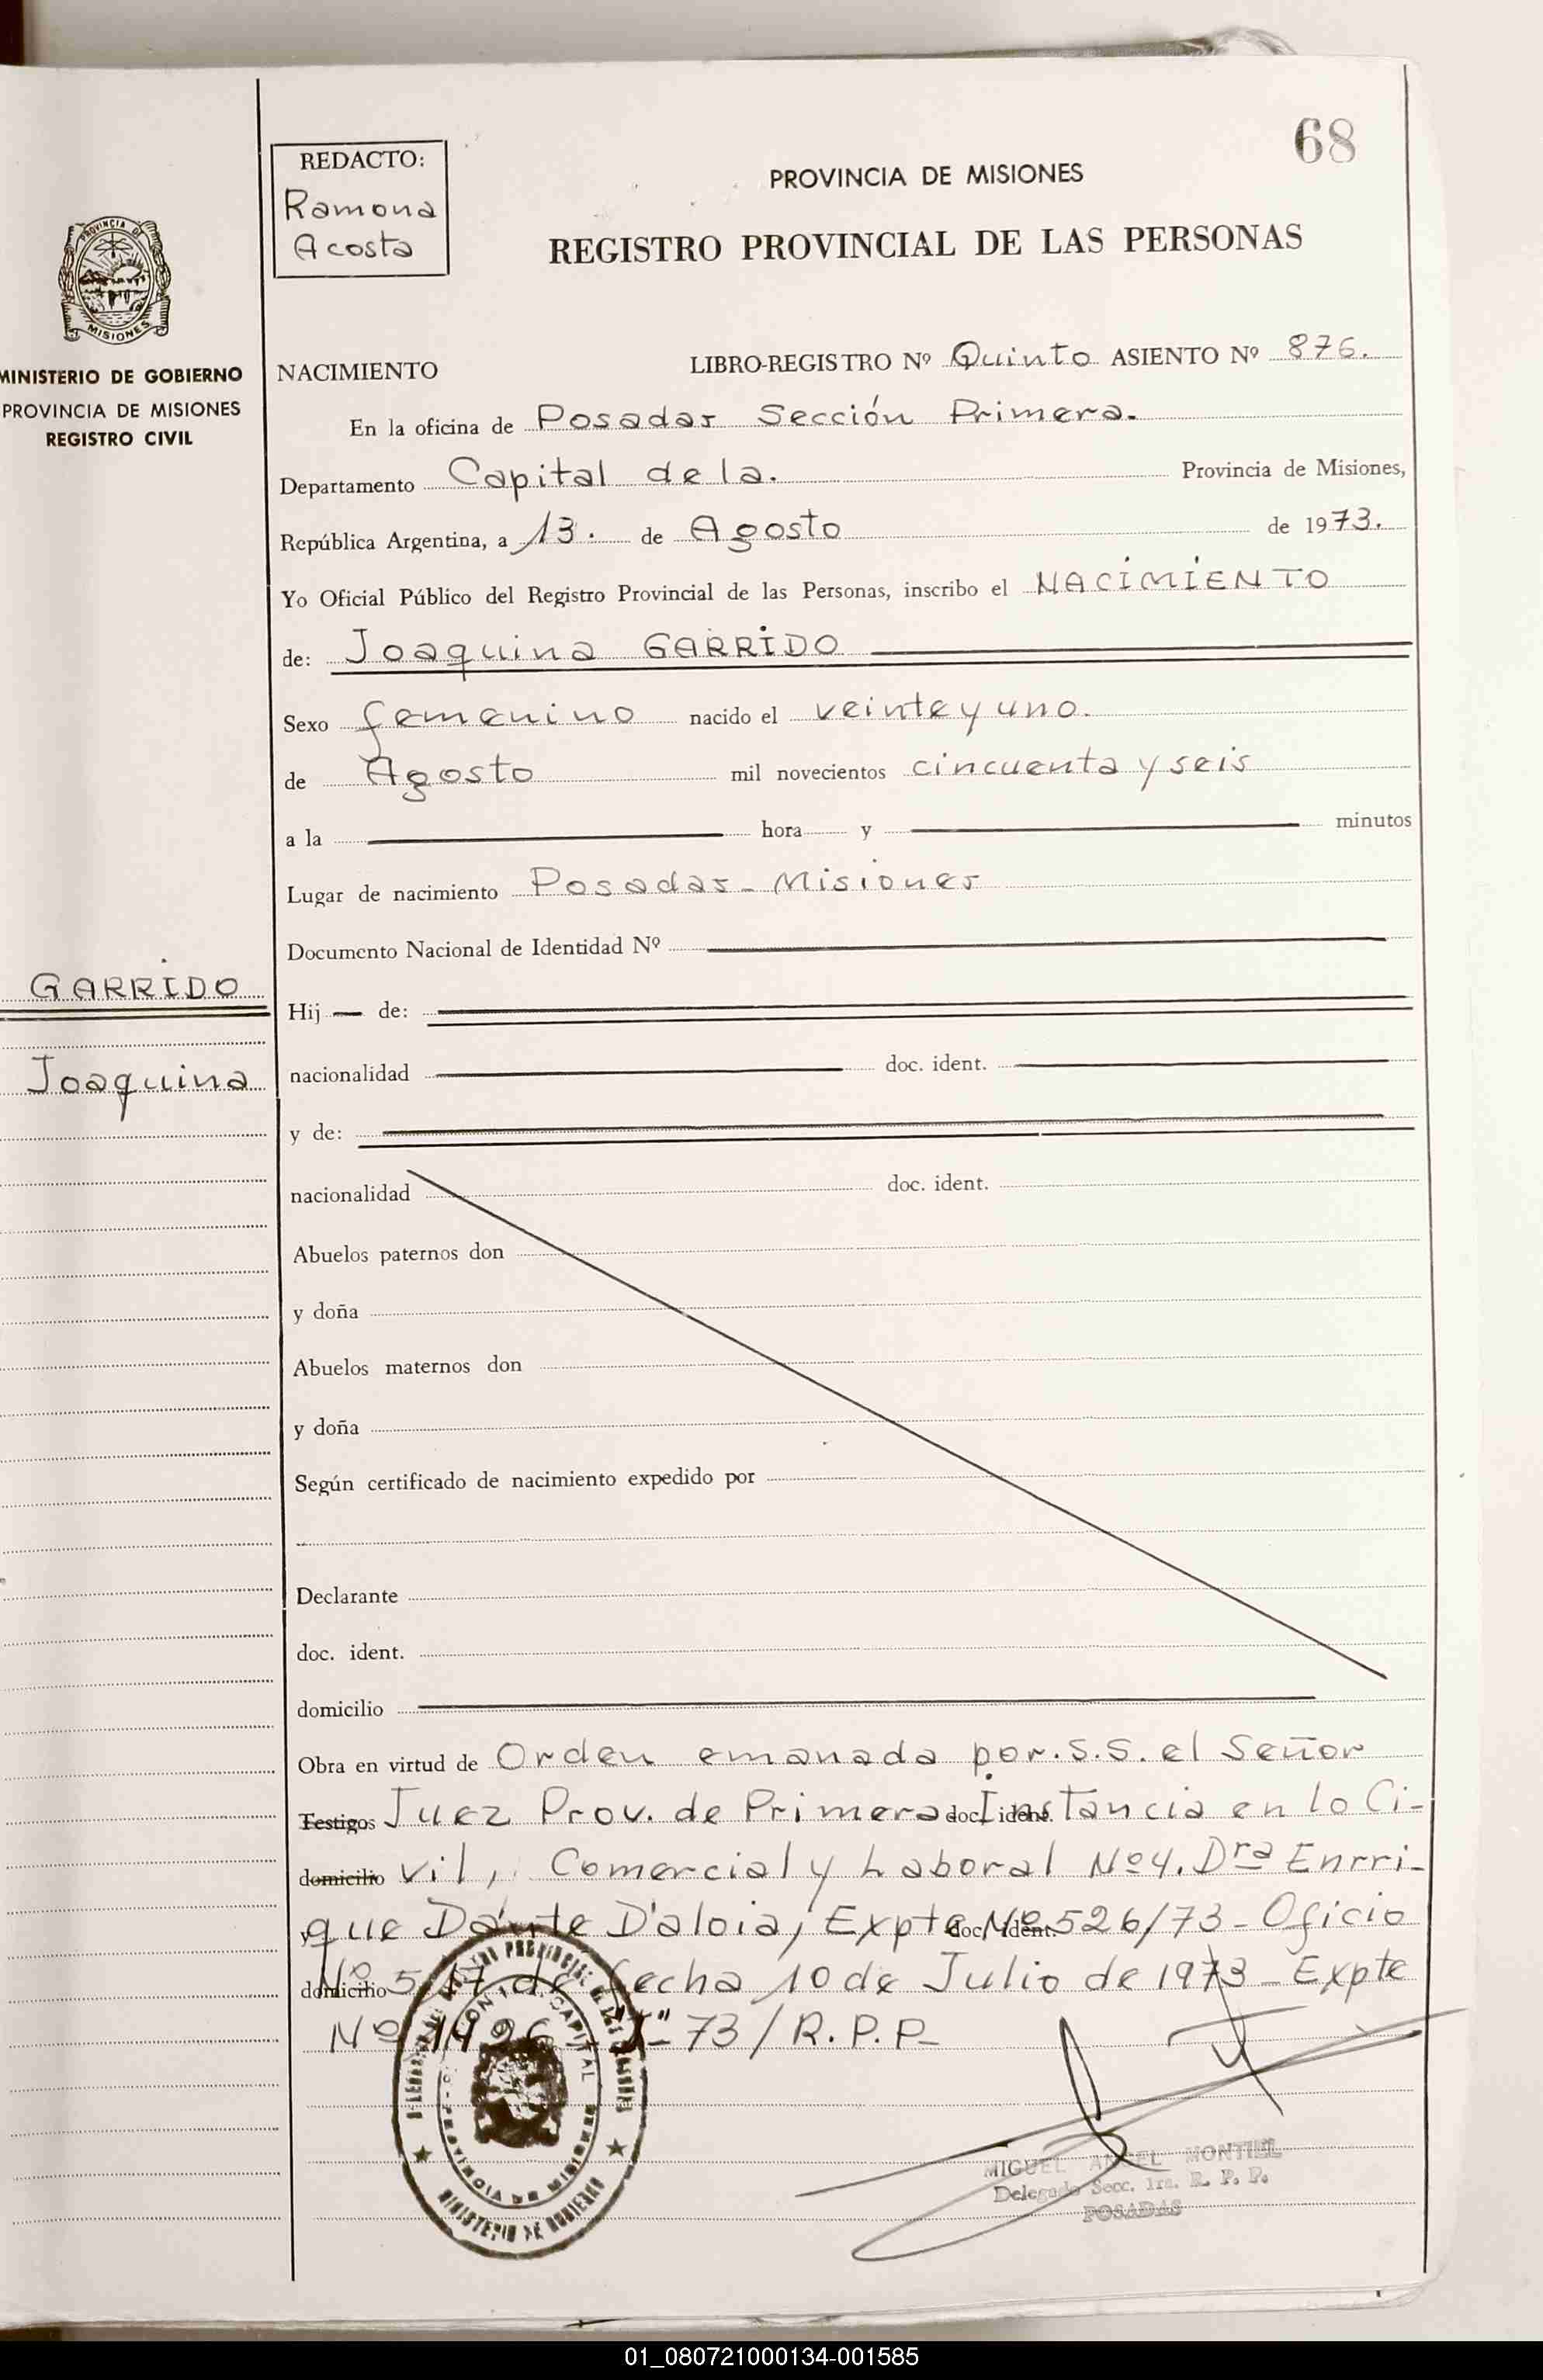 68
REDACTO:
Ramona
Acosta
PROVINCIA DE MISIONES
REGISTRO PROVINCIAL DE LAS PERSONAS
PROVINCIA DE
MISIONES
MINISTERIO DE GOBIERNO
PROVINCIA DE MISIONES
REGISTRO CIVIL
GARRIDO
Joaquina
NACIMIENTO LIBRO-REGISTRO Nº Quinto ASIENTO Nº 876.
En la oficina de Posadas Sección Primera.
Departamento Capital de la. Provincia de Misiones,
República Argentina, a 13. de Agosto de 1973.
Yo Oficial Público del Registro Provincial de las Personas, inscribo el NACIMIENTO
de: Joaquina GARRIDO
Sexo femenino nacido el veinte y uno.
de Agosto mil novecientos cincuenta y seis
a la hora y minutos
Lugar de nacimiento Posadas - Misiones
Documento Nacional de Identidad Nº
Hij de:
nacionalidad doc. ident.
y de:
nacionalidad doc. ident.
Abuelos paternos don
y doña
Abuelos maternos don
y doña
Según certificado de nacimiento expedido por
Declarante
doc. ident.
domicilio
Obra en virtud de Orden emanada por. S.S. el Señor
Testigos Juez Prov. de Primera doc. ident. Instancia en lo Ci-
domicilio vil, Comercial y Laboral Nº 4. Dra Enrri-
y que Dante D'aloia, Expte doc. ident. Nº 526/73 - Oficio
domicilio Nº de fecha 10 de Julio de 1973 - Expte
Nº 73 / R.P.P-
CAPITAL
PROVINCIA DE MISIONES
MINISTERIO DE GOBIERNO
MIGUEL ANGEL MONTIEL
Delegado Secc. 1ra. R. P. P.
POSADAS
01_080721000134-001585